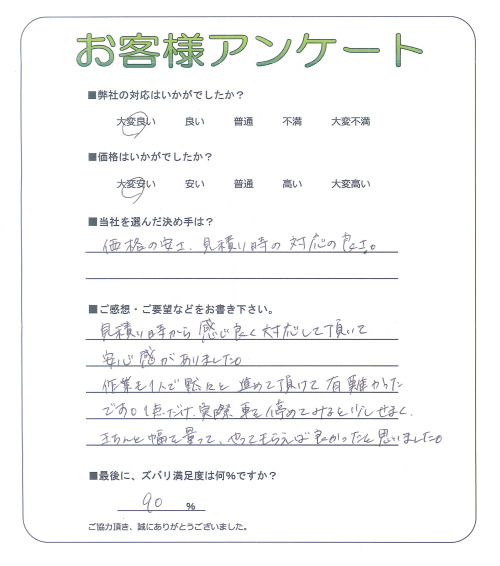 お客様アンケート
■弊社の対応はいかがでしたか？
大変良い 良い 普通 不満 大変不満
■価格はいかがでしたか？
大変安い 安い 普通 高い 大変高い
■当社を選んだ決め手は？
価格の安さ、見積り時の対応の良さ。
■ご感想・ご要望などをお書き下さい。
見積り時から感じ良く対応して頂いて
安心感がありました。
作業も1人で黙々と進めて頂けて有難かった
です。1点だけ、実際車を停めてみると少しせまく、
きちんと幅を量って、やってもらえば良かったと思いました。
■最後に、ズバリ満足度は何％ですか？
90 ％
ご協力頂き、誠にありがとうございました。